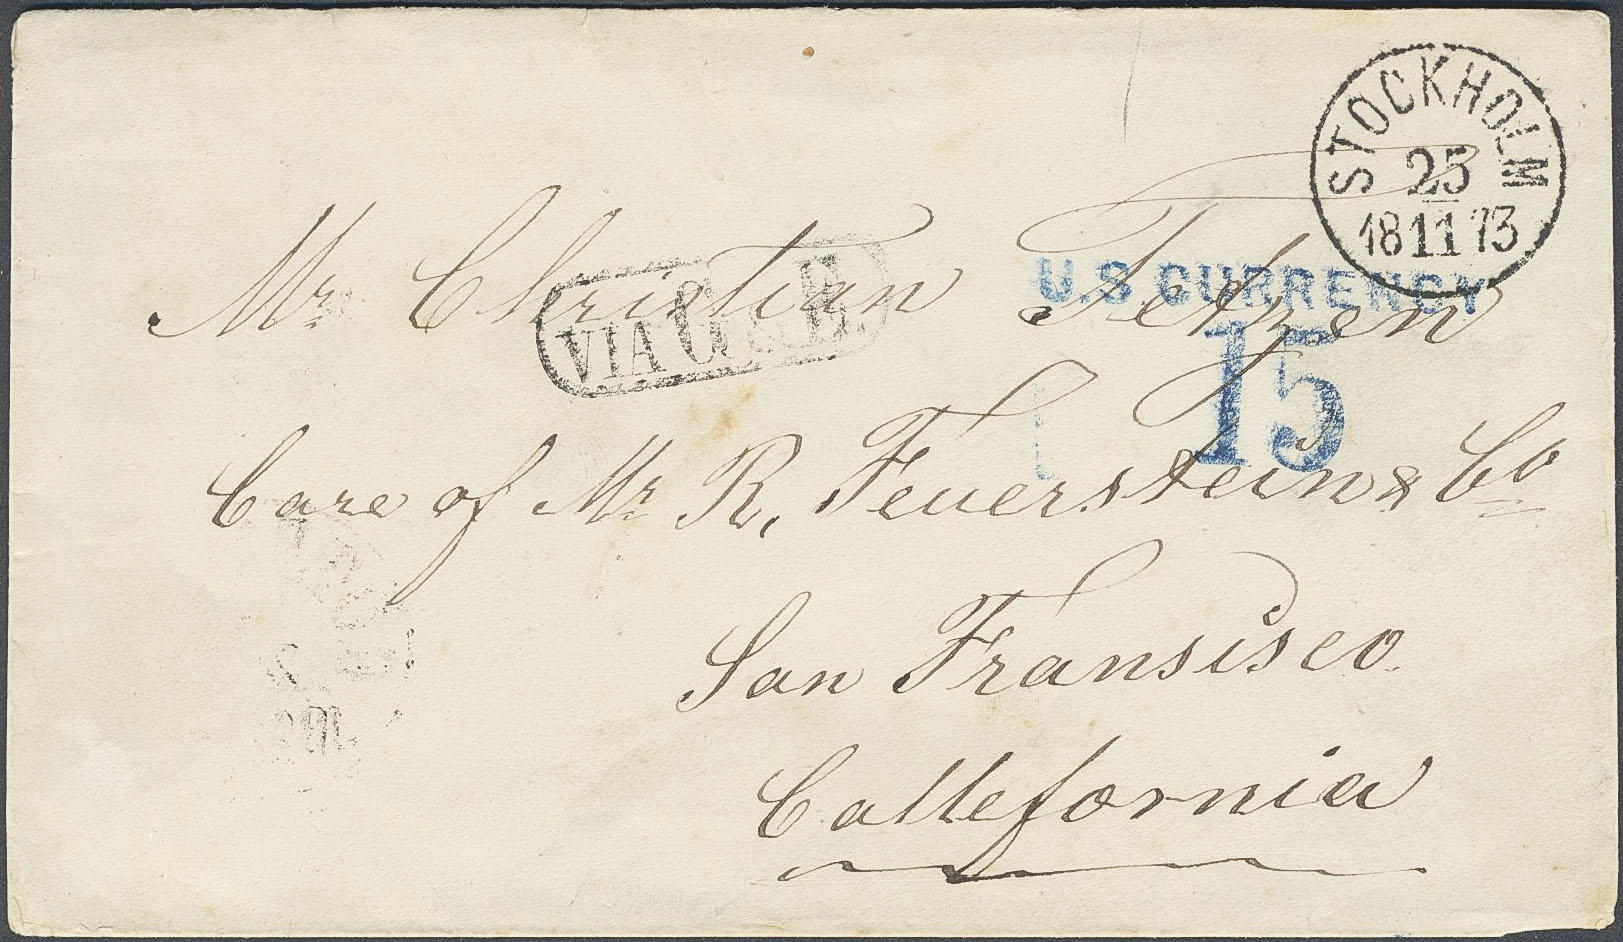 STOCKHOLM
25
18 11 73
U.S CURRENCY
15
VIA
Mr Christian
Care of Mr R. Feuerstein & Co
San Fransisco
Callefornia